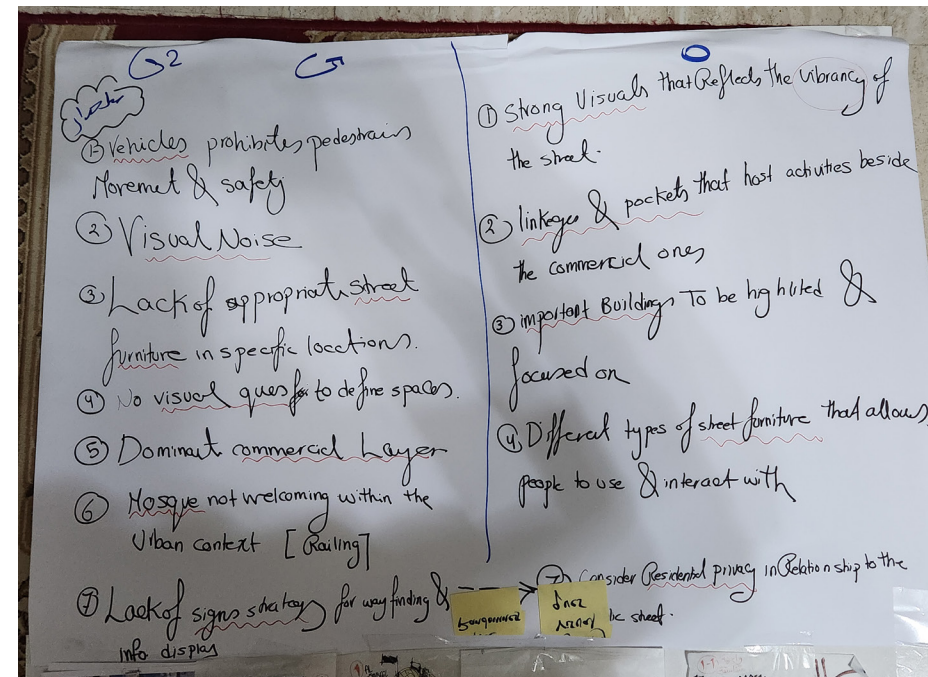 G2
① Vehicles prohibites pedestrains
Movemet & safety
② Visual Noise
③ Lack of appropriate street
furniture in specific locations.
④ No visual ques to define spaces.
⑤ Dominant commercial Layer
⑥ Mosque not welcoming within the
Urban context [Railing]
⑦ Lack of signs strategy for way finding &
info display
O
① Strong Visuals that Reflects the vibrancy of
the street.
② linkeges & pockets that host activities beside
the commercial ones
③ important Buildings To be highlited &
focused on
④ Different types of street furniture that allows
people to use & interact with
⑦ Consider Residential privacy in Relation ship to the
street.